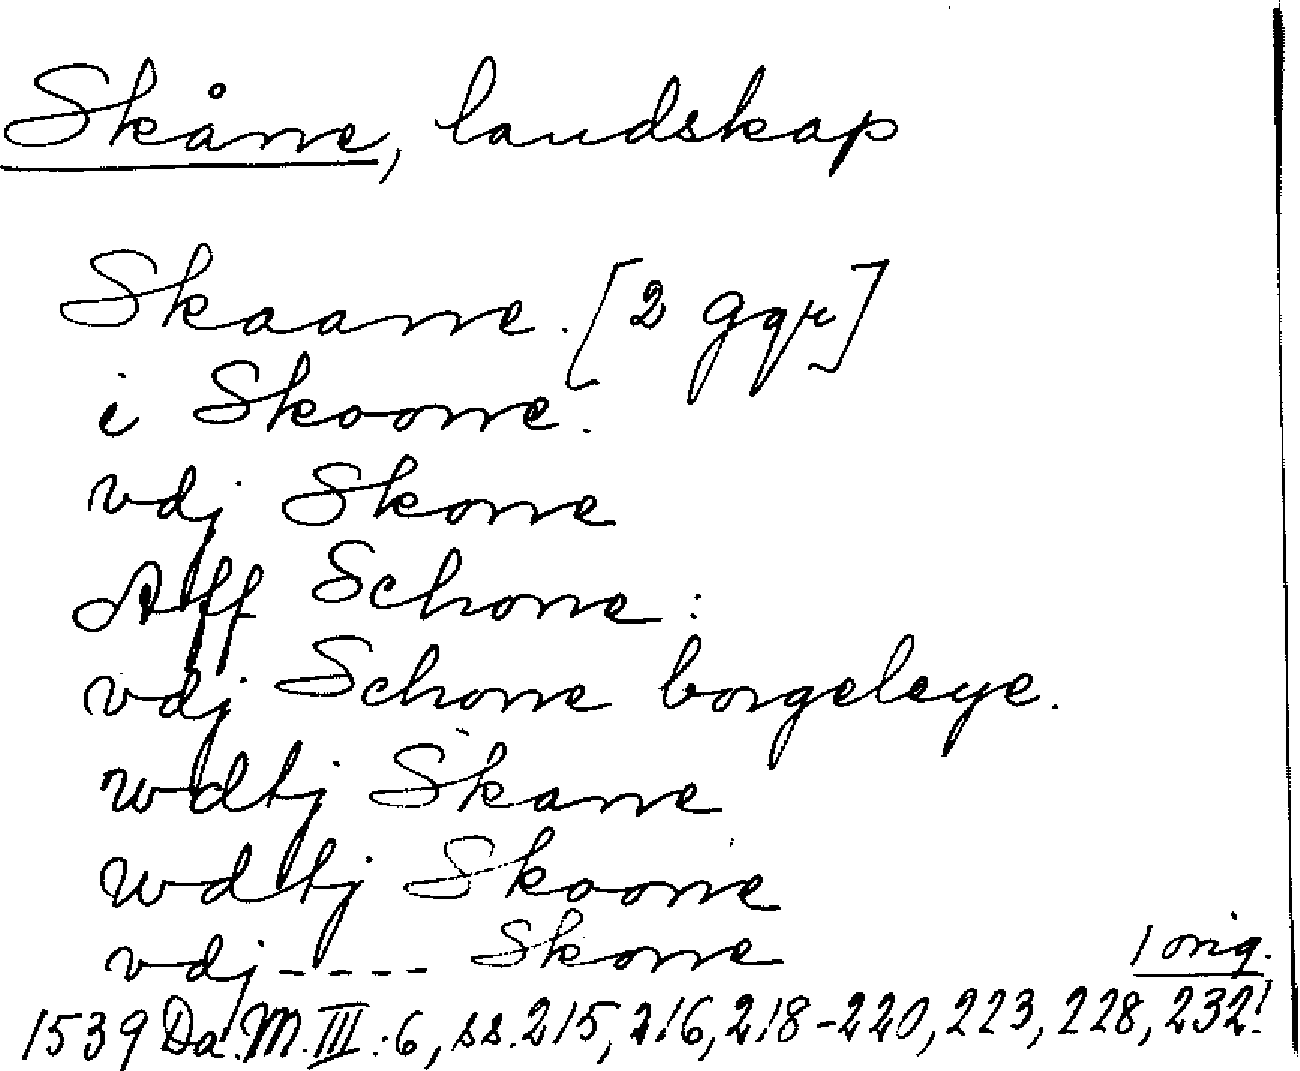 Skåne, landskap
Skaane. [2 ggr]
i Skoone.
vdj Skone
Aff Schone:
vdj Schone borgeleye.
wdtj Skane
wdtj Skoone
vdj---- Skone
1 orig.
1539 Da. M. III: 6, ss. 215, 216, 218-220, 223, 228, 232!